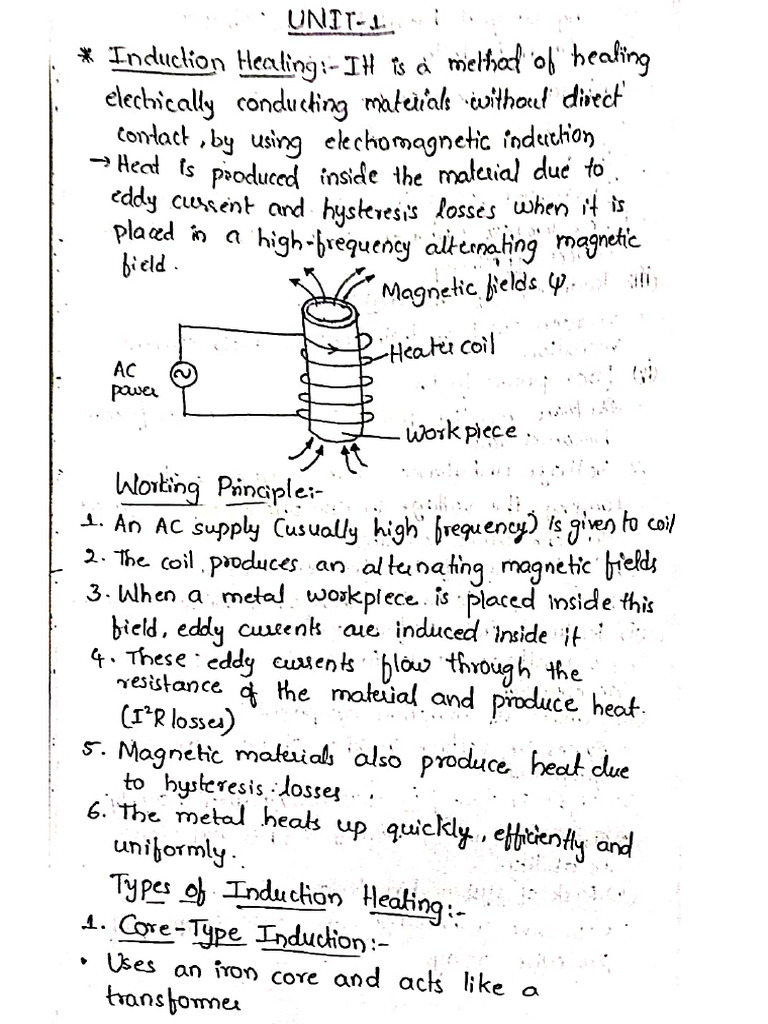 UNIT-1
* Induction Heating:- IH is a method of heating
electrically conducting materials without direct
contact, by using electromagnetic induction
→ Heat is produced inside the material due to
eddy current and hysteresis losses when it is
placed in a high-frequency alternating magnetic
field.
Magnetic fields ψ.
Heater coil
AC
power
Workpiece.
Working Principle:-
1. An AC supply (usually high frequency) is given to coil
2. The coil produces an alternating magnetic fields
3. When a metal workpiece is placed inside this
field, eddy currents are induced inside it
4. These eddy currents flow through the
resistance of the material and produce heat.
(I²R losses)
5. Magnetic materials also produce heat due
to hysteresis losses
6. The metal heats up quickly, efficiently and
uniformly.
Types of Induction Heating:-
1. Core-Type Induction:-
• Uses an iron core and acts like a
transformer